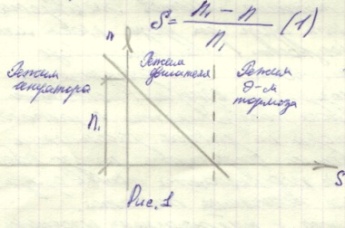 S = (n₁ - n) / n₁ (1)
n
Режим генератора
Режим двигателя
Режим э-м тормоза
n₁
S
Рис. 1